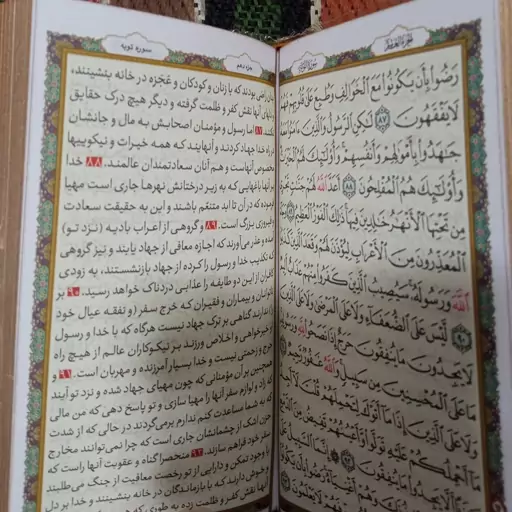 الجزء العاشر
سورة التوبة
رَضُوا بِأَن يَكُونُوا مَعَ الْخَوَالِفِ وَطُبِعَ عَلَىٰ قُلُوبِهِمْ فَهُمْ
لَا يَفْقَهُونَ ﴿٨٧﴾ لَٰكِنِ الرَّسُولُ وَالَّذِينَ ءَامَنُوا مَعَهُ
جَٰهَدُوا بِأَمْوَٰلِهِمْ وَأَنفُسِهِمْ وَأُولَٰئِكَ لَهُمُ الْخَيْرَٰتُ
وَأُولَٰئِكَ هُمُ الْمُفْلِحُونَ ﴿٨٨﴾ أَعَدَّ اللَّهُ لَهُمْ جَنَّٰتٍ تَجْرِي
مِن تَحْتِهَا الْأَنْهَٰرُ خَٰلِدِينَ فِيهَا ذَٰلِكَ الْفَوْزُ الْعَظِيمُ ﴿٨٩﴾ وَجَاءَ
الْمُعَذِّرُونَ مِنَ الْأَعْرَابِ لِيُؤْذَنَ لَهُمْ وَقَعَدَ الَّذِينَ كَذَبُوا
اللَّهَ وَرَسُولَهُ سَيُصِيبُ الَّذِينَ كَفَرُوا مِنْهُمْ عَذَابٌ أَلِيمٌ
﴿٩٠﴾ لَّيْسَ عَلَى الضُّعَفَاءِ وَلَا عَلَى الْمَرْضَىٰ وَلَا عَلَى الَّذِينَ
لَا يَجِدُونَ مَا يُنفِقُونَ حَرَجٌ إِذَا نَصَحُوا لِلَّهِ وَرَسُولِهِ
مَا عَلَى الْمُحْسِنِينَ مِن سَبِيلٍ وَاللَّهُ غَفُورٌ رَّحِيمٌ ﴿٩١﴾
وَلَا عَلَى الَّذِينَ إِذَا مَا أَتَوْكَ لِتَحْمِلَهُمْ قُلْتَ لَا أَجِدُ
مَا أَحْمِلُكُمْ عَلَيْهِ تَوَلَّوا وَّأَعْيُنُهُمْ تَفِيضُ مِنَ الدَّمْعِ
حَزَنًا أَلَّا يَجِدُوا مَا يُنفِقُونَ ﴿٩٢﴾ إِنَّمَا السَّبِيلُ عَلَى
الَّذِينَ يَسْتَأْذِنُونَكَ وَهُمْ أَغْنِيَاءُ رَضُوا بِأَن يَكُونُوا
جزء دهم
سوره توبه
راضی بودند که با زنان و کودکان و عجزه در خانه بنشینند،
دلهای آنها نقش کفر و ظلمت گرفته و دیگر هیچ درک حقایق
نکنند. ۸۷ اما رسول و مؤمنان اصحابش به مال و جانشان
در راه خدا جهاد کردند و آنهایند که همه خیرات و نیکوییها
مخصوص آنهاست و هم آنان سعادتمندان عالمند. ۸۸ خدا
بر آنها باغهایی که به زیر درختانش نهرها جاری است مهیا
فرموده که در آن تا ابد متنعّم باشند و این به حقیقت سعادت
و پیروزی بزرگ است. ۸۹ و گروهی از اعراب بادیه (نزد تو)
آمده و عذر می‌آورند که اجازه معافی از جهاد یابند و نیز گروهی
که تکذیب خدا و رسول را کرده از جهاد بازنشستند، به زودی
کافران از این دو طایفه را عذابی دردناک خواهد رسید. ۹۰ بر
ناتوانان و بیماران و فقیران که خرج سفر (و نفقه عیال خود
را) ندارند گناهی بر ترک جهاد نیست هرگاه که با خدا و رسول
او خیرخواهی و اخلاص ورزند بر نیکوکاران عالم از هیچ راه
حرج و زحمتی نیست و خدا بسیار آمرزنده و مهربان است. ۹۱ و
همچنین بر آن مؤمنانی که چون مهیای جهاد شده و نزد تو آیند
که زاد و لوازم سفر آنها را مهیا سازی و تو پاسخ دهی که من مالی
که به شما مساعدت کنم ندارم برمی‌گردند در حالی که از شدت
حزن اشک از چشمانشان جاری است که چرا نمی‌توانند مخارج
سفر خود فراهم سازند. ۹۲ منحصراً گناه و عقوبت آنها راست که
با وجود تمکن و دارایی از تو رخصت معافیت از جنگ می‌طلبند
و خوش دارند که با بازماندگان در خانه بنشینند و خدا بر دل
آنها نقش کفر و ظلمت زده به طوری که